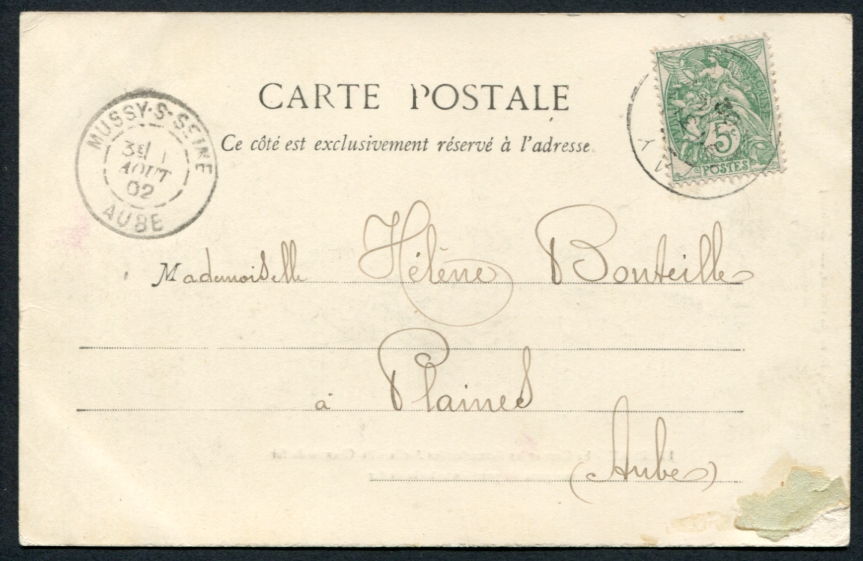 CARTE POSTALE
Ce côté est exclusivement réservé à l'adresse
MUSSY-S-SEINE
AOUT
02
AUBE
5c
POSTES
Mademoiselle Hélène Bonteille
à Plaines
(Aube)